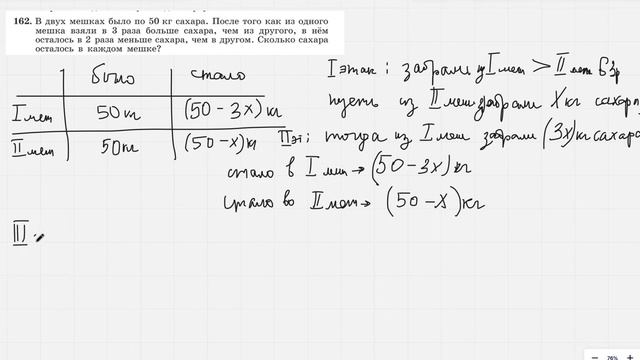 162. В двух мешках было по 50 кг сахара. После того как из одного
мешка взяли в 3 раза больше сахара, чем из другого, в нём
осталось в 2 раза меньше сахара, чем в другом. Сколько сахара
осталось в каждом мешке?
было стало
I меш 50 кг (50 - 3x) кг
II меш 50 кг (50 - x) кг
I этап: забрали из I меш > II меш в 3р
пусть из II меш забрали X кг сахара
II эт: тогда из I меш забрали (3x) кг сахара
стало в I меш → (50 - 3x) кг
стало во II меш → (50 - x) кг
III
76%